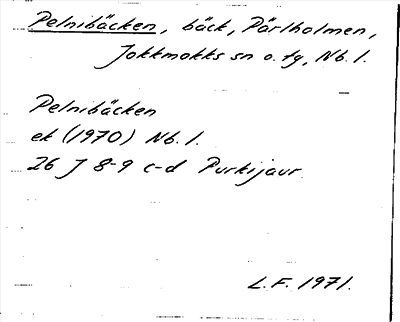 Pelnibäcken, bäck, Pärlholmen,
Jokkmokks sn o. tg, Nb. l.
Pelnibäcken
ek (1970) Nb. l.
26 J 8-9 c-d Purkijaur.
L.F. 1971.